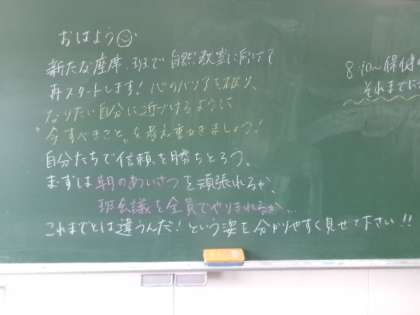 おはよう
新たな座席、班で自然教室に向けて
再スタートします！心のバリアを破り、
なりたい自分に近づけるように
"今すべきこと"を考え動きましょう！
自分たちで信頼を勝ちとろう、
まずは朝のあいさつを頑張れるか、
班会議を全員でやりきれるか、
これまでとは違うんだ！という姿を分かりやすく見せて下さい！！
8:10〜保健
それまでに